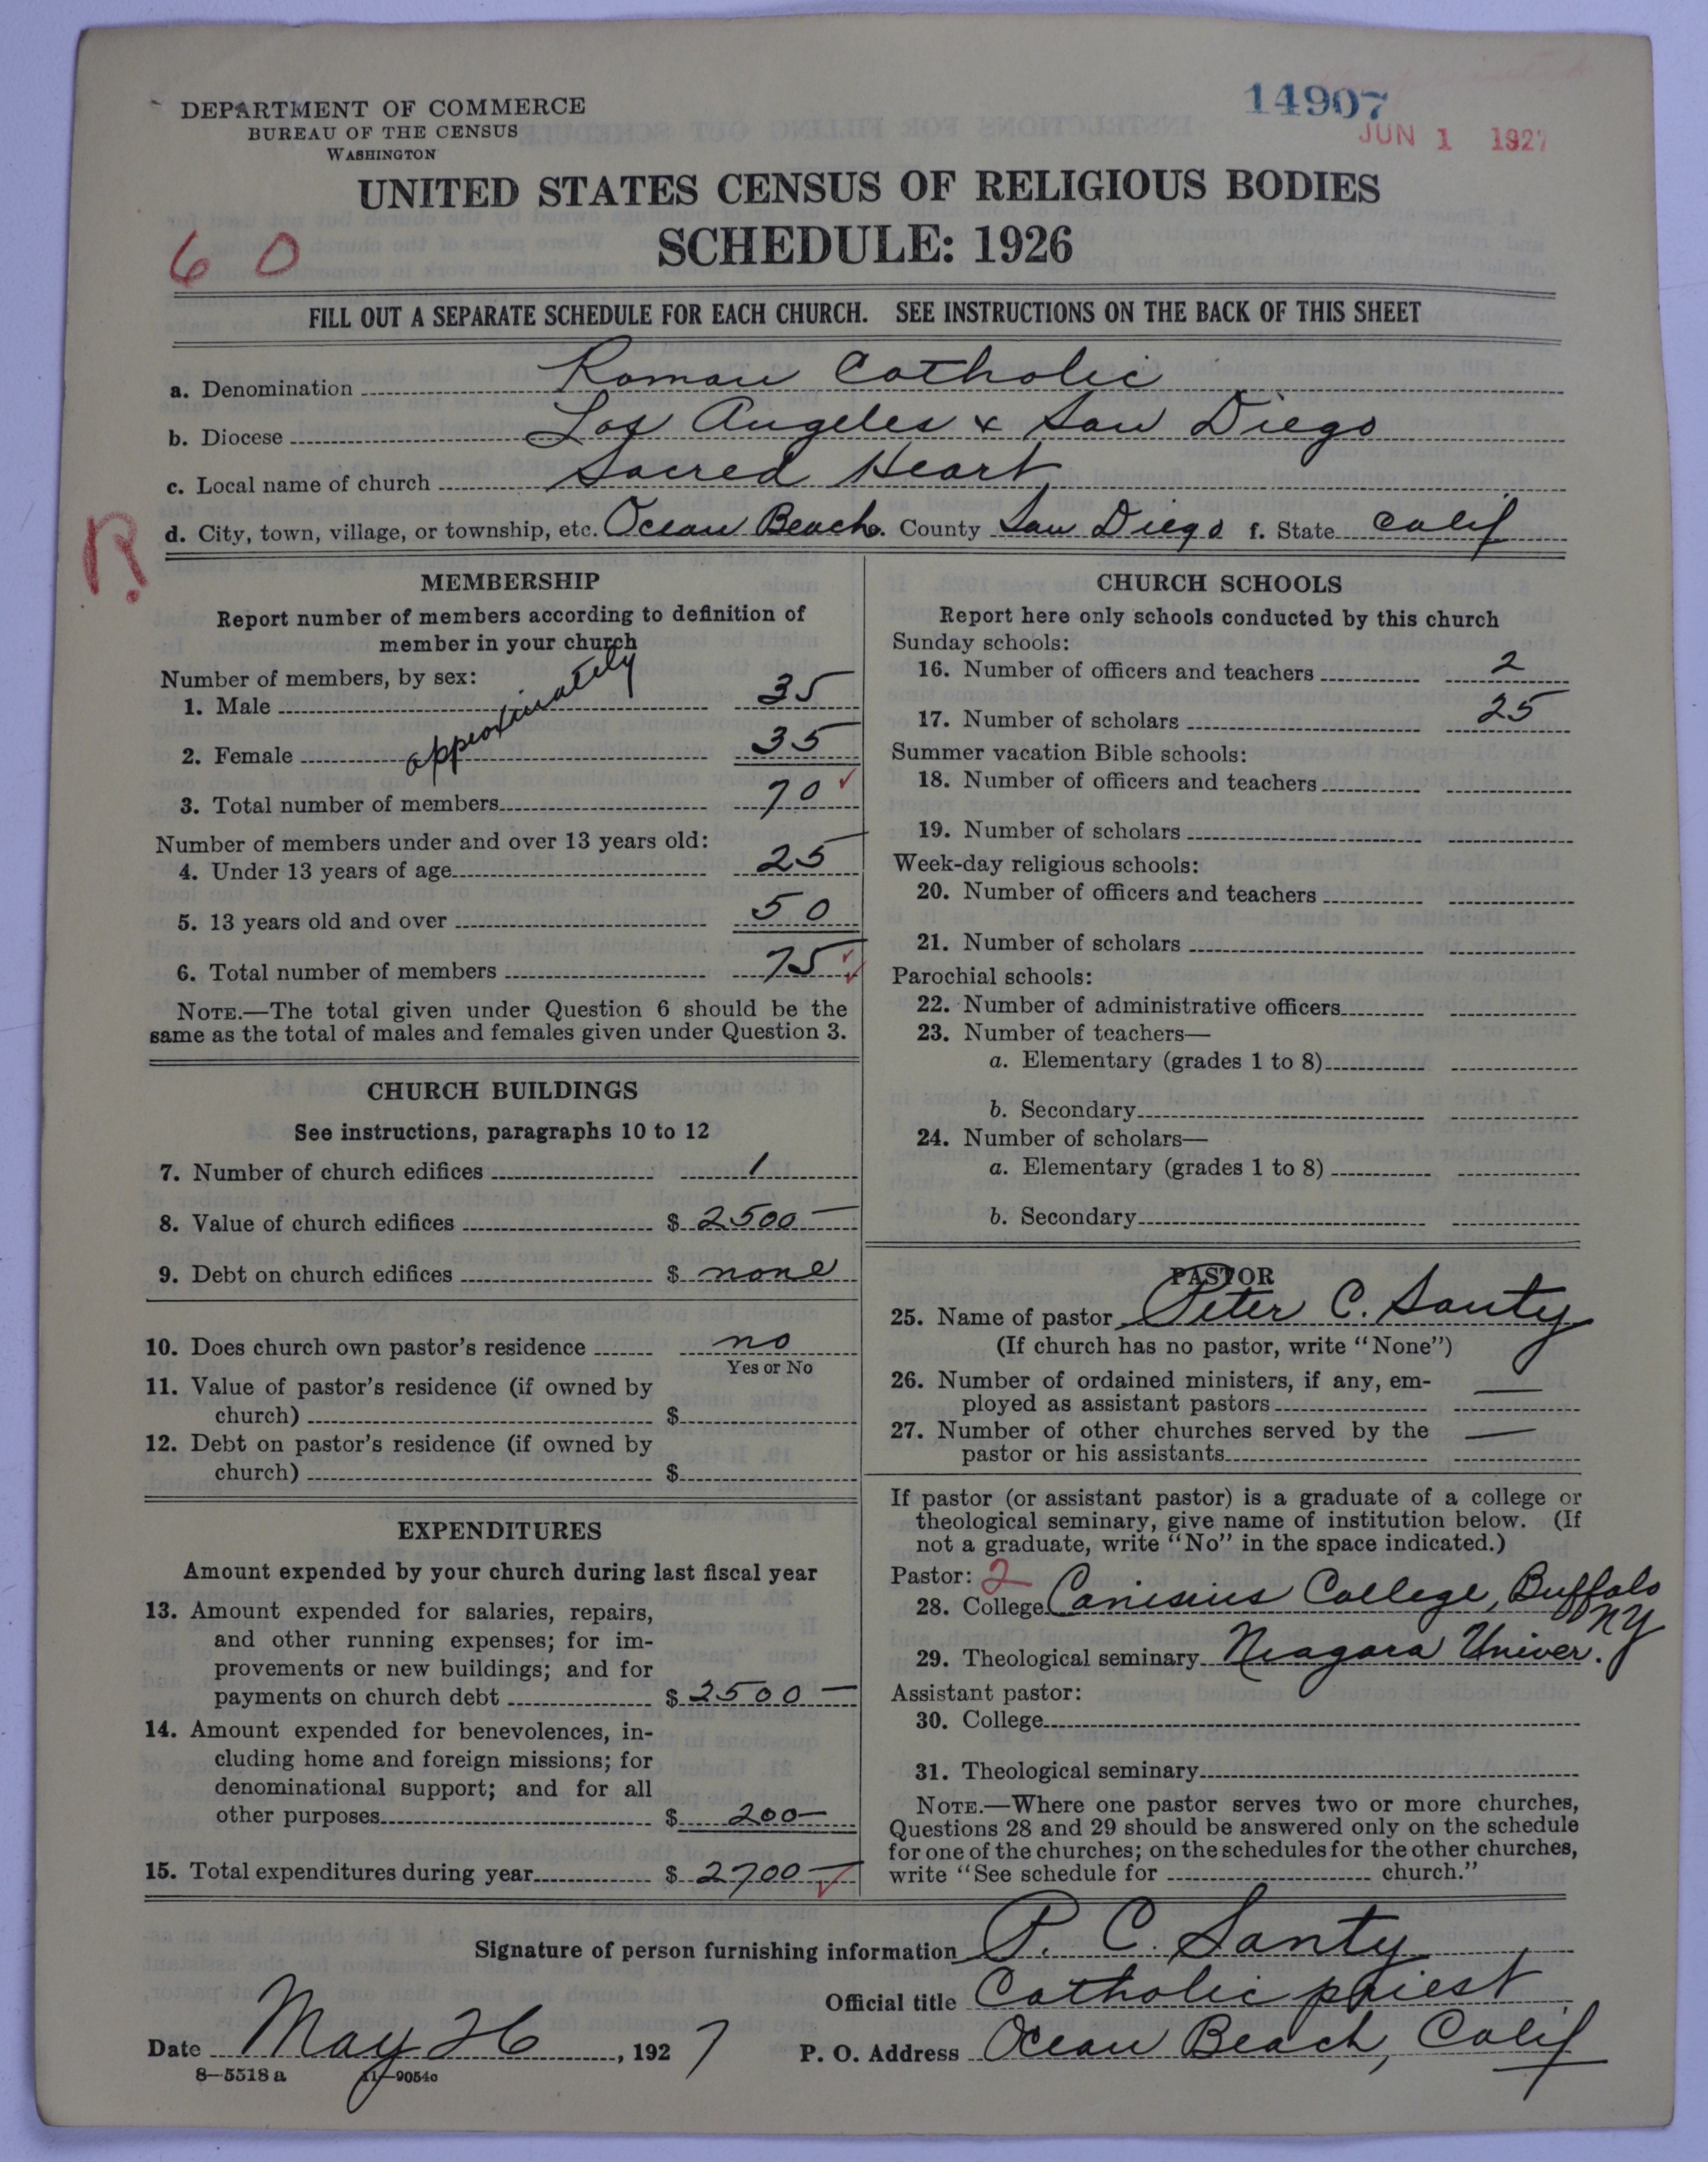 DEPARTMENT OF COMMERCE
BUREAU OF THE CENSUS
WASHINGTON
14907
JUN 1 1927
UNITED STATES CENSUS OF RELIGIOUS BODIES
SCHEDULE: 1926
6 0
FILL OUT A SEPARATE SCHEDULE FOR EACH CHURCH. SEE INSTRUCTIONS ON THE BACK OF THIS SHEET
a. Denomination Roman Catholic
b. Diocese Los Angeles & San Diego
c. Local name of church Sacred Heart
R. d. City, town, village, or township, etc. Ocean Beach e. County San Diego f. State Calif
MEMBERSHIP
Report number of members according to definition of
member in your church
Number of members, by sex:
approximately
1. Male 35
2. Female 35
3. Total number of members 70
Number of members under and over 13 years old:
4. Under 13 years of age 25
5. 13 years old and over 50
6. Total number of members 75
NOTE.—The total given under Question 6 should be the
same as the total of males and females given under Question 3.
CHURCH BUILDINGS
See instructions, paragraphs 10 to 12
7. Number of church edifices 1
8. Value of church edifices $ 2500—
9. Debt on church edifices $ none
10. Does church own pastor's residence no
Yes or No
11. Value of pastor's residence (if owned by
church) $
12. Debt on pastor's residence (if owned by
church) $
EXPENDITURES
Amount expended by your church during last fiscal year
13. Amount expended for salaries, repairs,
and other running expenses; for im-
provements or new buildings; and for
payments on church debt $ 2500—
14. Amount expended for benevolences, in-
cluding home and foreign missions; for
denominational support; and for all
other purposes $ 200—
15. Total expenditures during year $ 2700—
CHURCH SCHOOLS
Report here only schools conducted by this church
Sunday schools:
16. Number of officers and teachers 2
17. Number of scholars 25
Summer vacation Bible schools:
18. Number of officers and teachers
19. Number of scholars
Week-day religious schools:
20. Number of officers and teachers
21. Number of scholars
Parochial schools:
22. Number of administrative officers
23. Number of teachers—
a. Elementary (grades 1 to 8)
b. Secondary
24. Number of scholars—
a. Elementary (grades 1 to 8)
b. Secondary
PASTOR
25. Name of pastor Peter C. Santy
(If church has no pastor, write "None")
26. Number of ordained ministers, if any, em-
ployed as assistant pastors —
27. Number of other churches served by the
pastor or his assistants —
If pastor (or assistant pastor) is a graduate of a college or
theological seminary, give name of institution below. (If
not a graduate, write "No" in the space indicated.)
Pastor: 2
28. College Canisius College, Buffalo
NY
29. Theological seminary Niagara Univer.
Assistant pastor:
30. College
31. Theological seminary
NOTE.—Where one pastor serves two or more churches,
Questions 28 and 29 should be answered only on the schedule
for one of the churches; on the schedules for the other churches,
write "See schedule for church."
Signature of person furnishing information P. C. Santy
Official title Catholic priest
Date May 26, 1927 P. O. Address Ocean Beach, Calif
8—5518 a 11—9054c